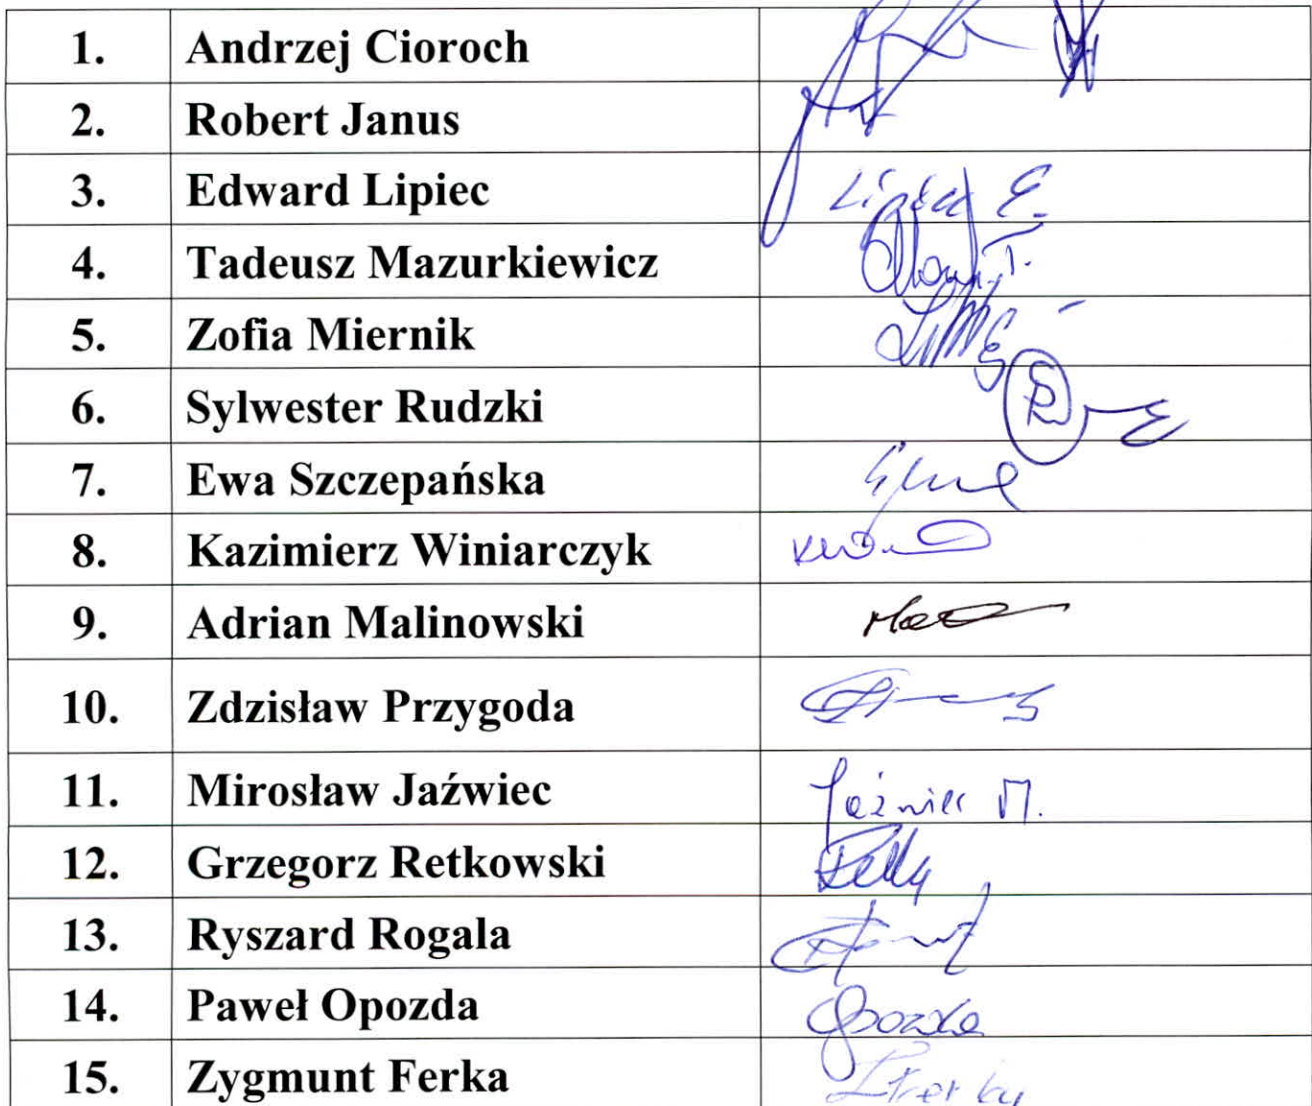 1. Andrzej Cioroch
2. Robert Janus
3. Edward Lipiec Lipiec E.
4. Tadeusz Mazurkiewicz
5. Zofia Miernik
6. Sylwester Rudzki
7. Ewa Szczepańska
8. Kazimierz Winiarczyk
9. Adrian Malinowski
10. Zdzisław Przygoda
11. Mirosław Jaźwiec Jaźwiec M.
12. Grzegorz Retkowski
13. Ryszard Rogala
14. Paweł Opozda
15. Zygmunt Ferka